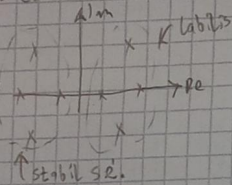 Im
labilis
Re
stabil sé.